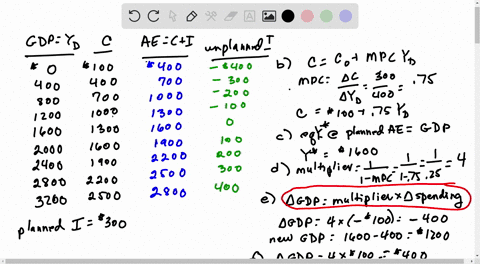 GDP=Y_D C AE=C+I unplanned_I
$ 0 $100 $400 -$400
400 400 700 -300
800 700 1000 -200
1200 1000 1300 -100
1600 1300 1600 0
2000 1600 1900 100
2400 1900 2200 200
2800 2200 2500 300
3200 2500 2800 400
planned I = $300
b) C = C_0 + MPC Y_D
MPC: ΔC/ΔY_D = 300/400 = .75
C = $100 + .75 Y_D
c) eq^m @ planned AE = GDP
Y* = $1600
d) multiplier = 1/1-MPC = 1/1-.75 = 1/.25 = 4
e) ΔGDP = multiplier × Δspending
ΔGDP = 4 × (-$100) = -400
new GDP = 1600 - 400 = $1200
ΔGDP = 4 × $100 = $400